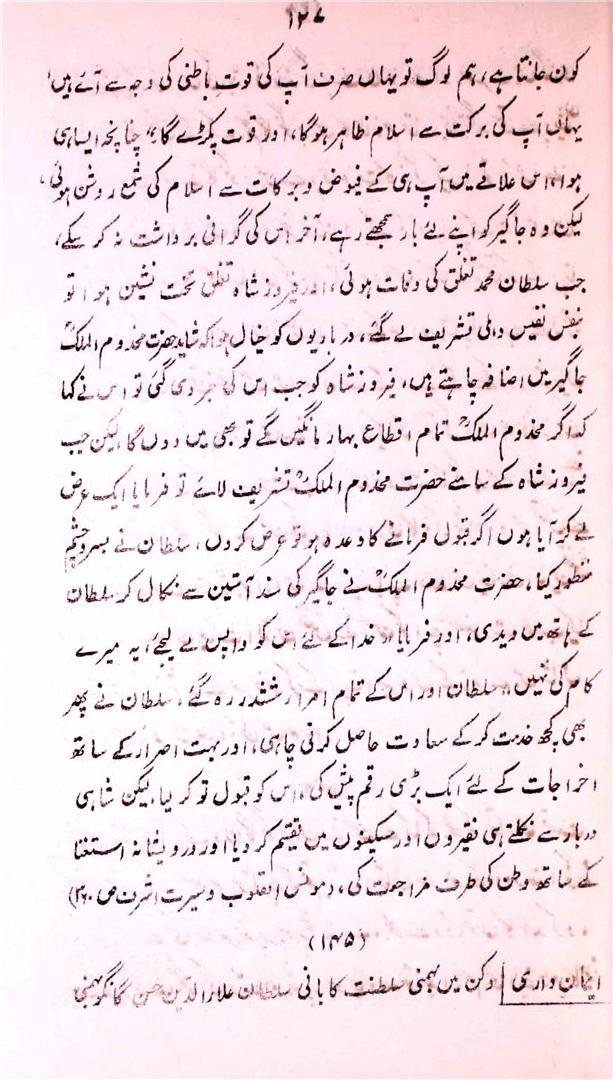 ۱۲۷
کون جانتا ہے، ہم لوگ تو یہاں صرف آپ کی قوتِ باطنی کی وجہ سے آئے ہیں،
یہاں آپ کی برکت سے اسلام ظاہر ہوگا، اور قوت پکڑے گا" چنانچہ ایسا ہی
ہوا، اس علاقے میں آپ ہی کے فیوض و برکات سے اسلام کی شمع روشن ہوئی،
لیکن وہ جاگیر کو اپنے لئے بار سمجھتے رہے، آخر اس کی گرانی برداشت نہ کر سکے،
جب سلطان محمد تغلق کی وفات ہوئی، اور فیروز شاہ تغلق تخت نشین ہوا تو
بنفس نفیس دہلی تشریف لے گئے، درباریوں کو خیال ہوا کہ شاید حضرت مخدوم الملکؒ
جاگیر میں اضافہ چاہتے ہیں، فیروز شاہ کو جب اس کی خبر دی گئی تو اس نے کہا
کہ اگر مخدوم الملکؒ تمام اقطاع بہار مانگیں گے تو بھی میں دوں گا، لیکن جب
فیروز شاہ کے سامنے حضرت مخدوم الملکؒ تشریف لائے تو فرمایا ایک عرض
لے کر آیا ہوں اگر قبول فرمانے کا وعدہ ہو تو عرض کروں، سلطان نے بسر و چشم
منظور کیا، حضرت مخدوم الملکؒ نے جاگیر کی سند آستین سے نکال کر سلطان
کے ہاتھ میں دیدی، اور فرمایا "خدا کے لئے اس کو واپس لے لیجئے، یہ میرے
کام کی نہیں" سلطان اور اس کے تمام امراء ششدر رہ گئے، سلطان نے پھر
بھی کچھ خدمت کر کے سعادت حاصل کرنی چاہی، اور بہت اصرار کے ساتھ
اخراجات کے لئے ایک بڑی رقم پیش کی، اس کو قبول تو کر لیا، لیکن شاہی
دربار سے نکلتے ہی فقیروں اور مسکینوں میں تقسیم کر دیا اور درویشانہ استغنا
کے ساتھ وطن کی طرف مراجعت کی، (مونس القلوب و سیرت اشرف ص ۲۶۰)
(۱۴۵)
ایمان داری | دکن میں بہمنی سلطنت کا بانی سلطان علاء الدین حسن گانگو بہمنی